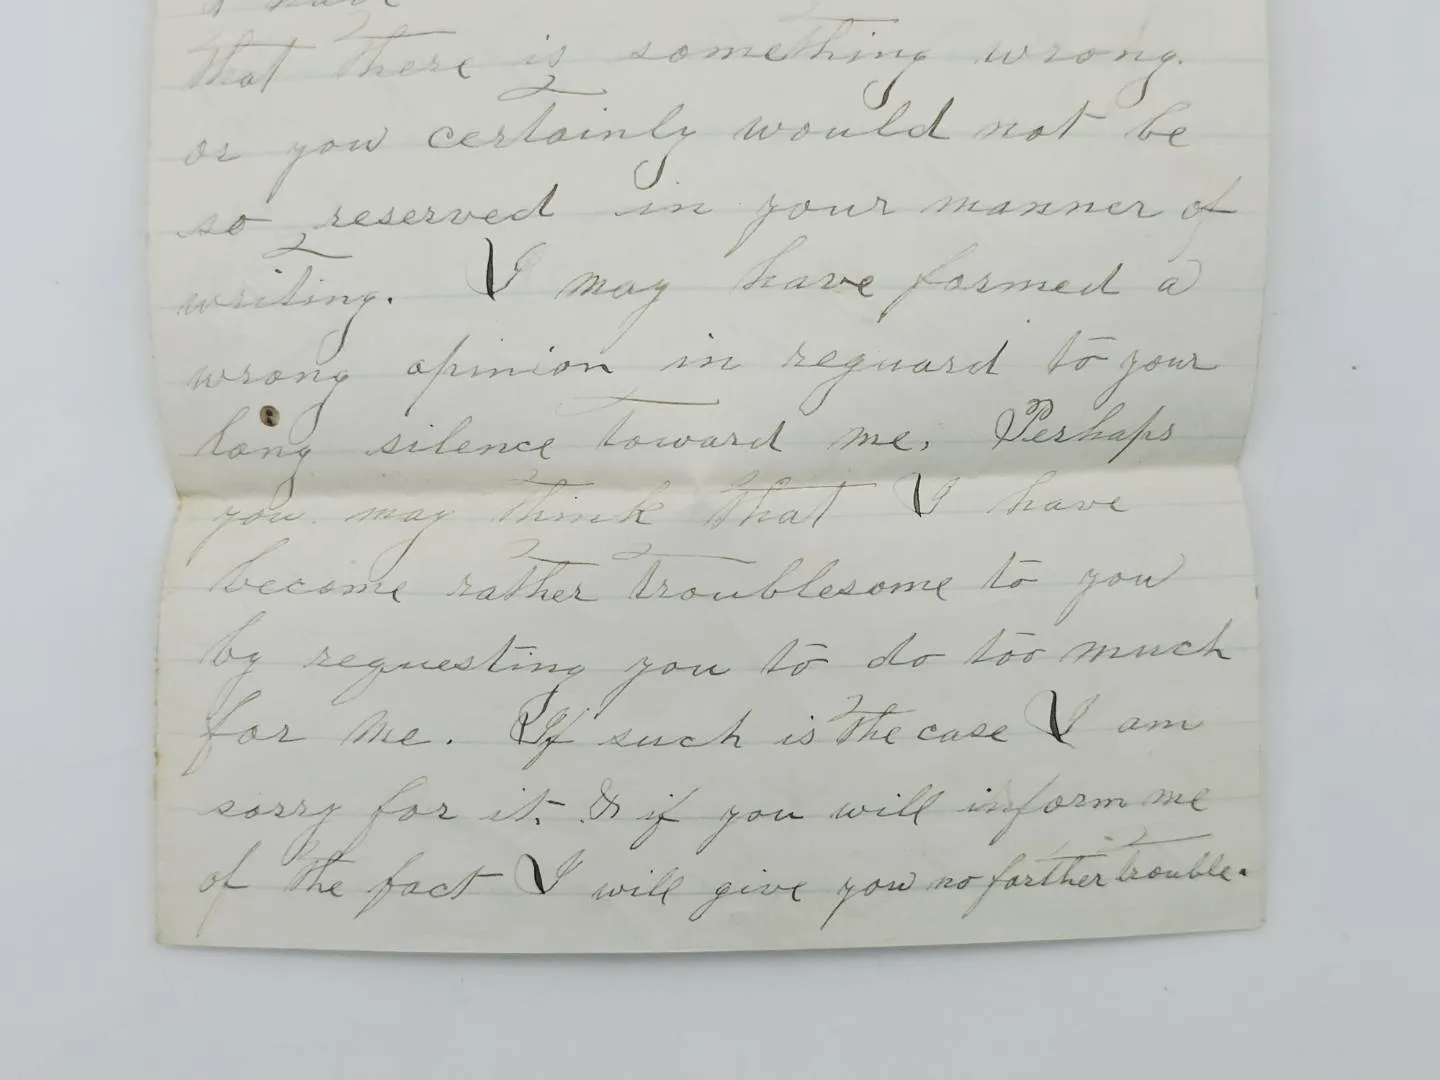 I have
that there is something wrong.
or you certainly would not be
so reserved in your manner of
writing. I may have formed a
wrong opinion in reguard to your
long silence toward me. Perhaps
you may think that I have
become rather troublesome to you
by requesting you to do too much
for me. If such is the case I am
sorry for it. & if you will inform me
of the fact I will give you no farther trouble.